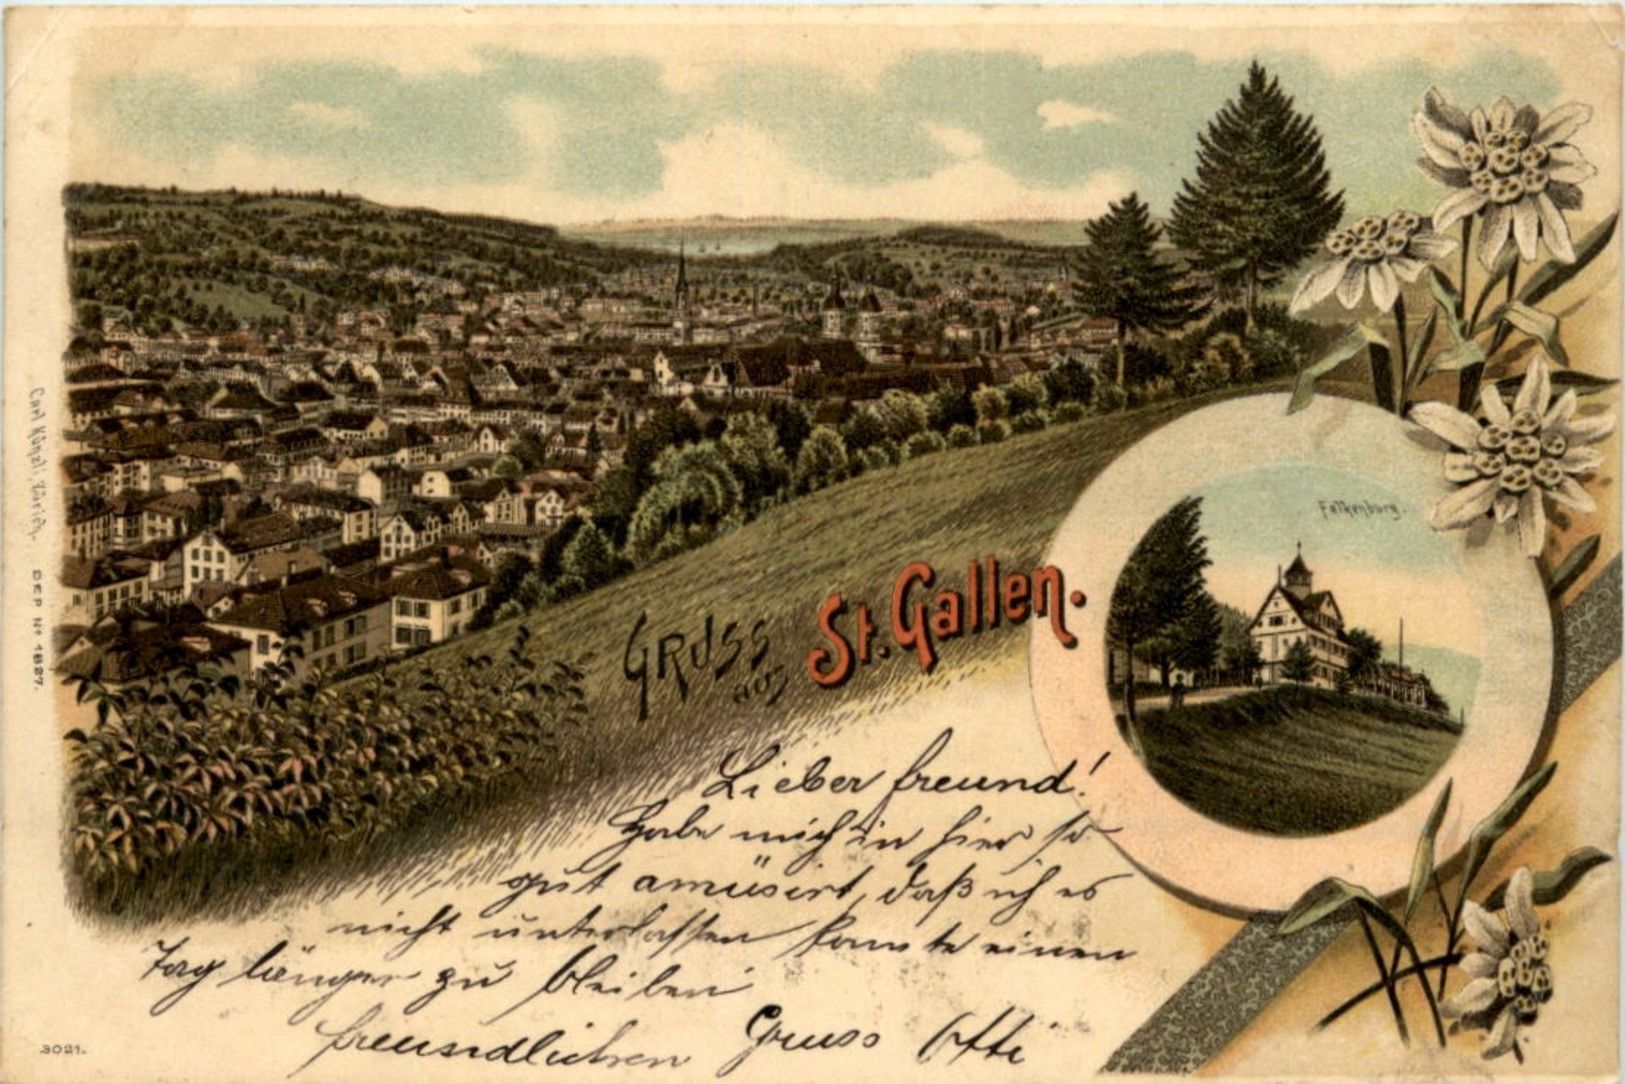 Falkenburg.
GRUSS aus St. Gallen.
Lieber Freund!
Habe mich in hier so
gut amüsirt, daß ich es
nicht unterlassen konnte einen
Tag länger zu bleiben
freundlichen Gruss
Carl Künzli, Zürich. DEP. No 1827.
3021.